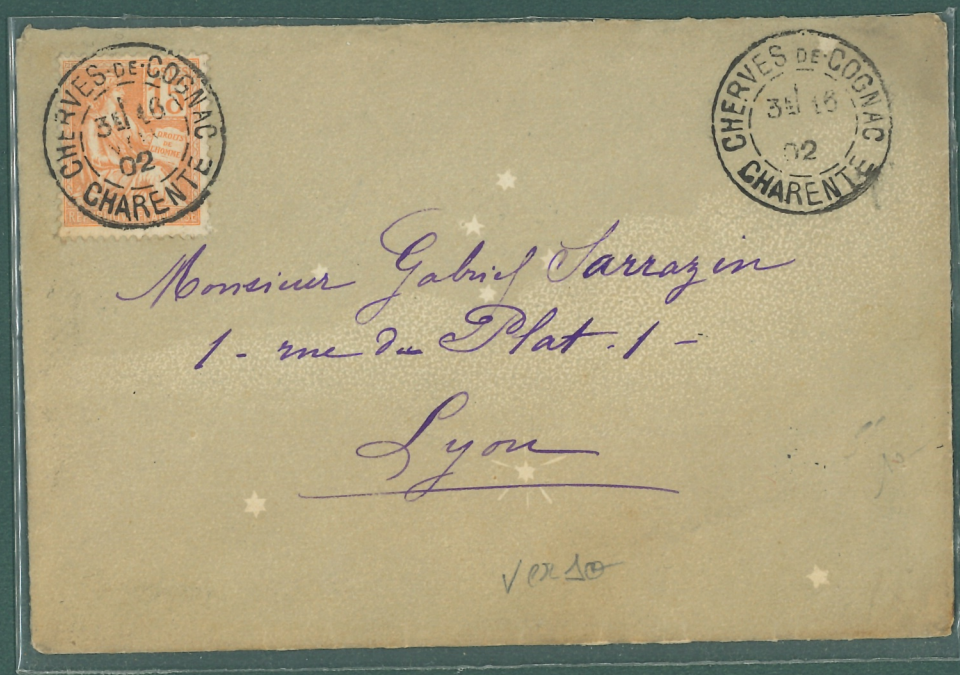 CHERVES-DE-COGNAC
3E 16
02
CHARENTE
15
DROITS
DE
L'HOMME
CHERVES DE COGNAC
3E 16
02
CHARENTE
Monsieur Gabriel Sarrazin
1 - rue du Plat. 1 -
Lyon
verso